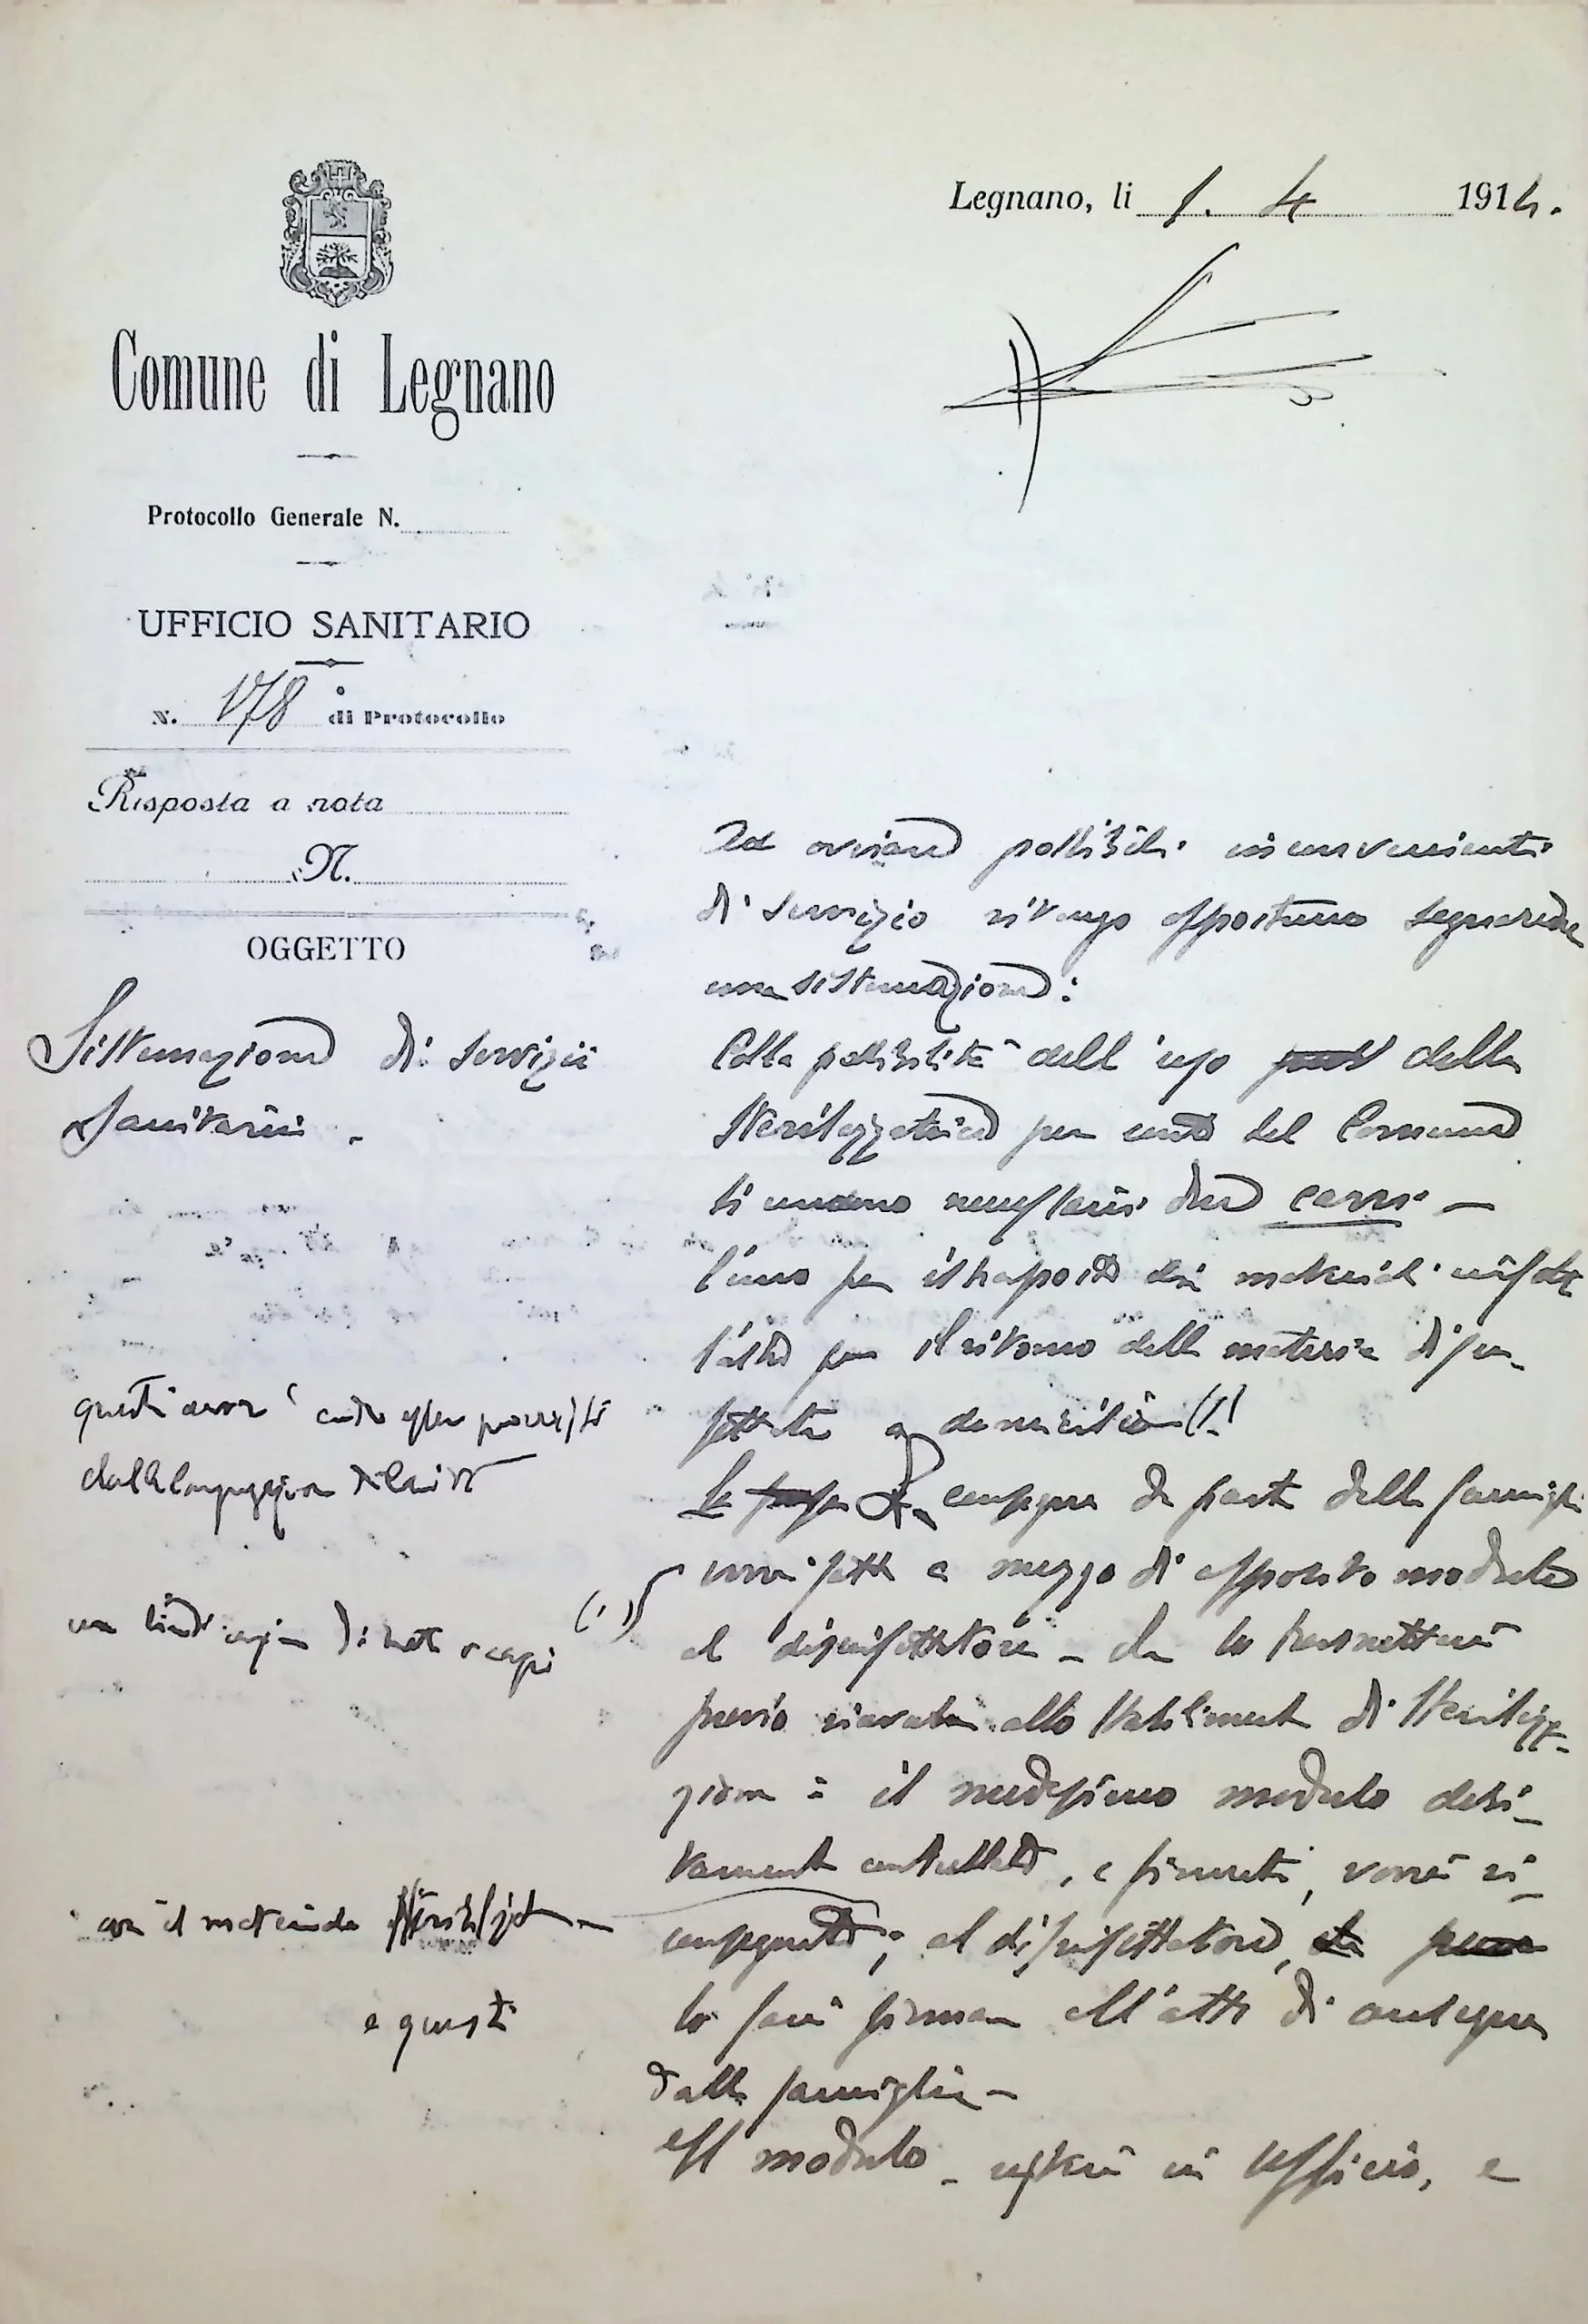 Legnano, li 1. 4 1914.
Comune di Legnano
Protocollo Generale N.
UFFICIO SANITARIO
N. 178 di Protocollo
Risposta a nota
N.
OGGETTO
Sistemazione di servizii
Sanitarii.
Ad ovviare possibili inconvenienti
di servizio ritengo opportuno segnare
una sistemazione:
Colla possibilità dell'uso della
Sterilizzatrice per conto del Comune
si necessarii due carri —
l'uno per il trasporto dei materiali infetti
l'altro per il ritorno delle materie disin-
fettate a domicilio (1)
La consegna da parte delle famiglie
a mezzo di apposito modulo
al disinfettatore - che lo trasmetterà
previo ricevuta allo Stabilimento di Sterilizza-
zione: il medesimo modulo debi-
tamente controllato, e firmato, verrà ri-
consegnato; al disinfettatore,
lo farà firmare all'atto di consegna
dalla famiglia -
Il modulo - resterà in Ufficio, e
questi carri
dalla
(1)
con il materiale
e questi